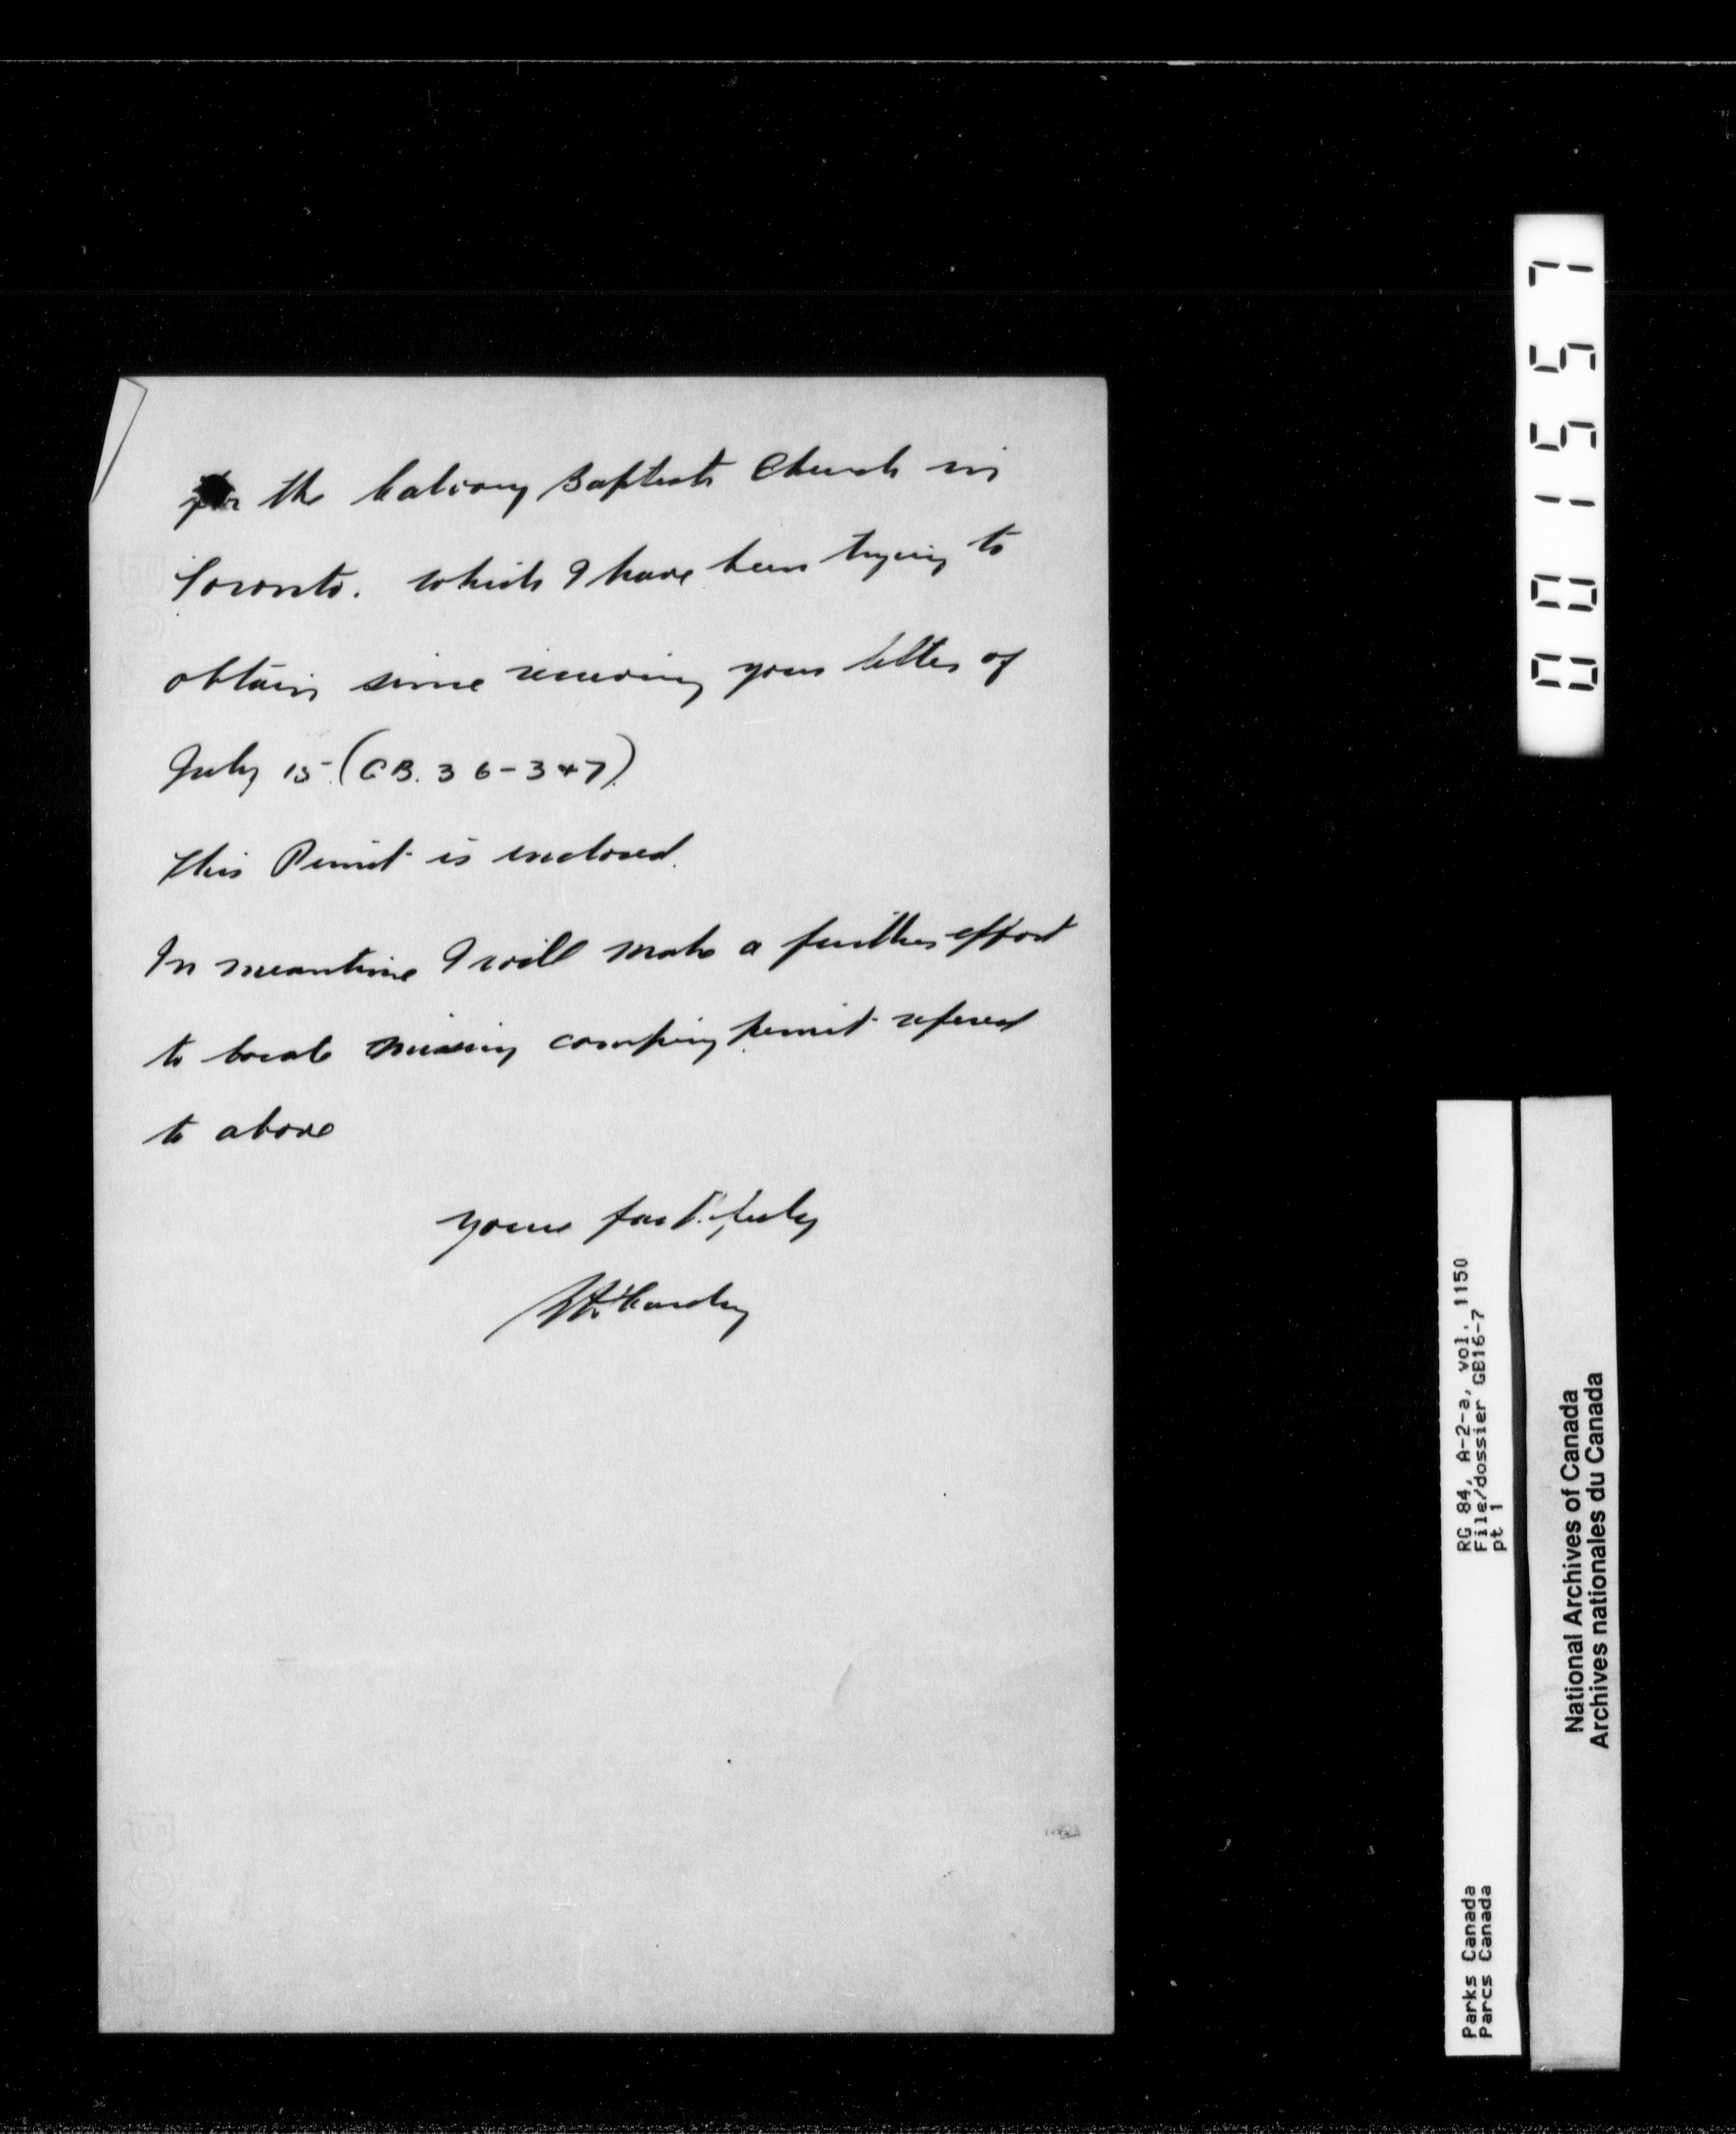 for the Calvary Baptist Church in
Toronto. which I have been trying to
obtain since receiving your letter of
July 15 (GB. 36-3+7)
This Permit is enclosed.
In meantime I will make a further effort
to locate missing camping permit refered
to above
yours faithfully
001557
RG 84, A-2-a, vol. 1150
File/dossier GB16-7
pt 1
Parks Canada
Parcs Canada
National Archives of Canada
Archives nationales du Canada